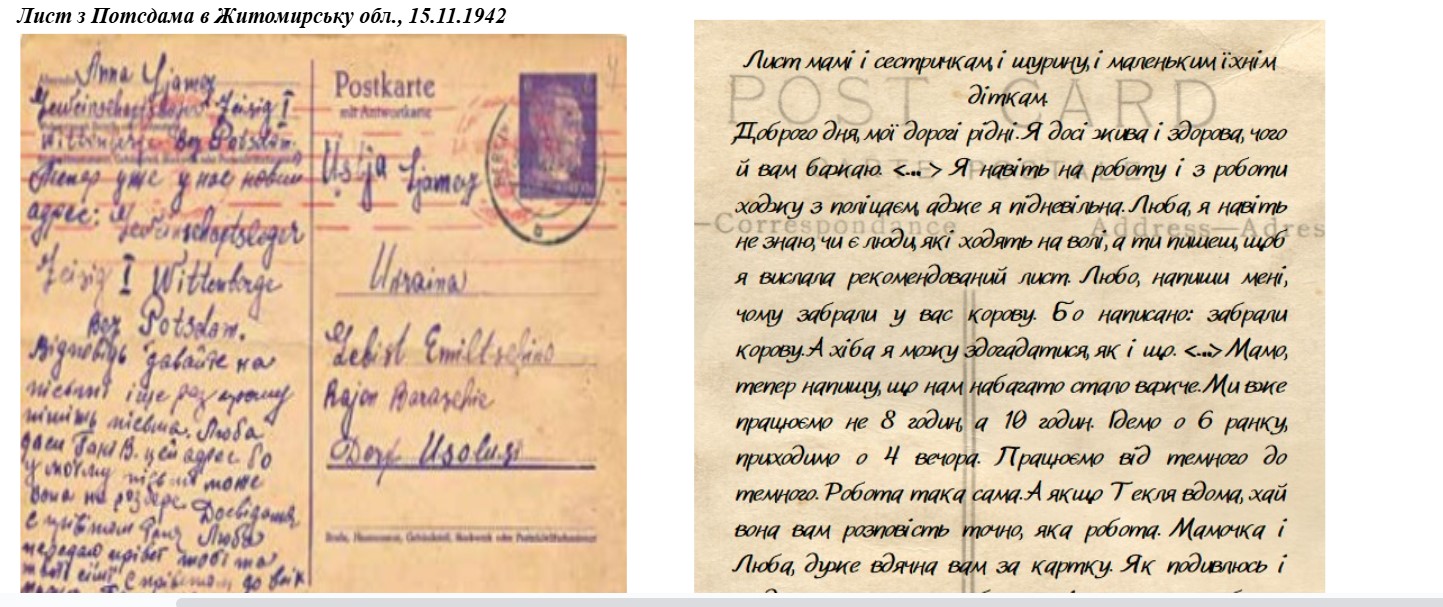 Лист з Потсдама в Житомирську обл., 15.11.1942
Anna
I
Wittenberge bez Potsdam.
Тепер уже у нас новий
адрес:
I Wittenberge
bez Potsdam.
Відповідь давайте на
і ще раз прошу
пишіть письма. Люба
цей адрес бо
у моєму письмі може
вона не розбере Досвідання
с привітом Люба
передаю привіт тобі та
Postkarte
mit Antwortkarte
Ustja
Ukraina
Gebist Emiltschino
Rajon Baraschie
Dorf Usolusi
POST CARD
CARTE POSTALE
Correspondance
Address—Adres
Лист мамі і сестричкам, і шурину, і маленьким їхнім
діткам.
Доброго дня, мої дорогі рідні. Я досі жива і здорова, чого
й вам бажаю. <...> Я навіть на роботу і з роботи
ходжу з поліцаєм, адже я підневільна. Люба, я навіть
не знаю, чи є люди, які ходять на волі, а ти пишеш, щоб
я вислала рекомендований лист. Любо, напиши мені,
чому забрали у вас корову. Бо написано: забрали
корову. А хіба я можу здогадатися, як і що. <...> Мамо,
тепер напишу, що нам набагато стало важче. Ми вже
працюємо не 8 годин, а 10 годин. Ідемо о 6 ранку,
приходимо о 4 вечора. Працюємо від темного до
темного. Робота така сама. А якщо Текля вдома, хай
вона вам розповість точно, яка робота. Мамочка і
Люба, дуже вдячна вам за картку. Як подивлюсь і